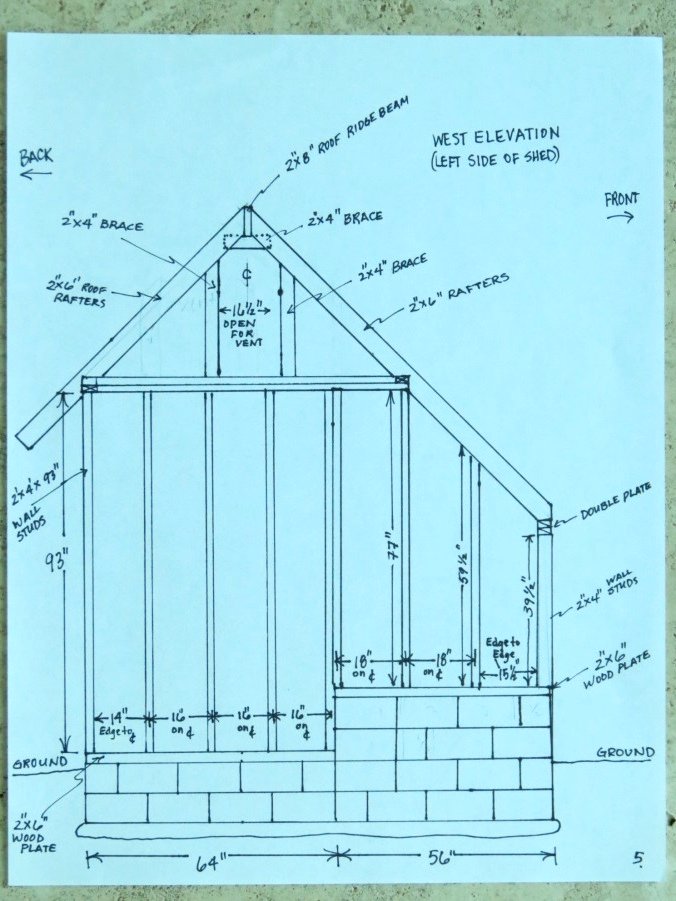 2"x8" ROOF RIDGE BEAM
WEST ELEVATION
(LEFT SIDE OF SHED)
BACK
FRONT
2"x4" BRACE
2"x4" BRACE
2"x4" BRACE
2"x6" ROOF
RAFTERS
2"x6" RAFTERS
℄
16½"
OPEN
FOR
VENT
2"x4"x93"
WALL
STUDS
93"
77"
59½"
39½"
DOUBLE PLATE
2"x4" WALL
STUDS
2"x6"
WOOD PLATE
Edge to
Edge
15½"
18"
on ℄
18"
on ℄
14"
Edge to ℄
16"
on ℄
16"
on ℄
16"
on ℄
GROUND
GROUND
2"x6"
WOOD
PLATE
64"
56"
5.